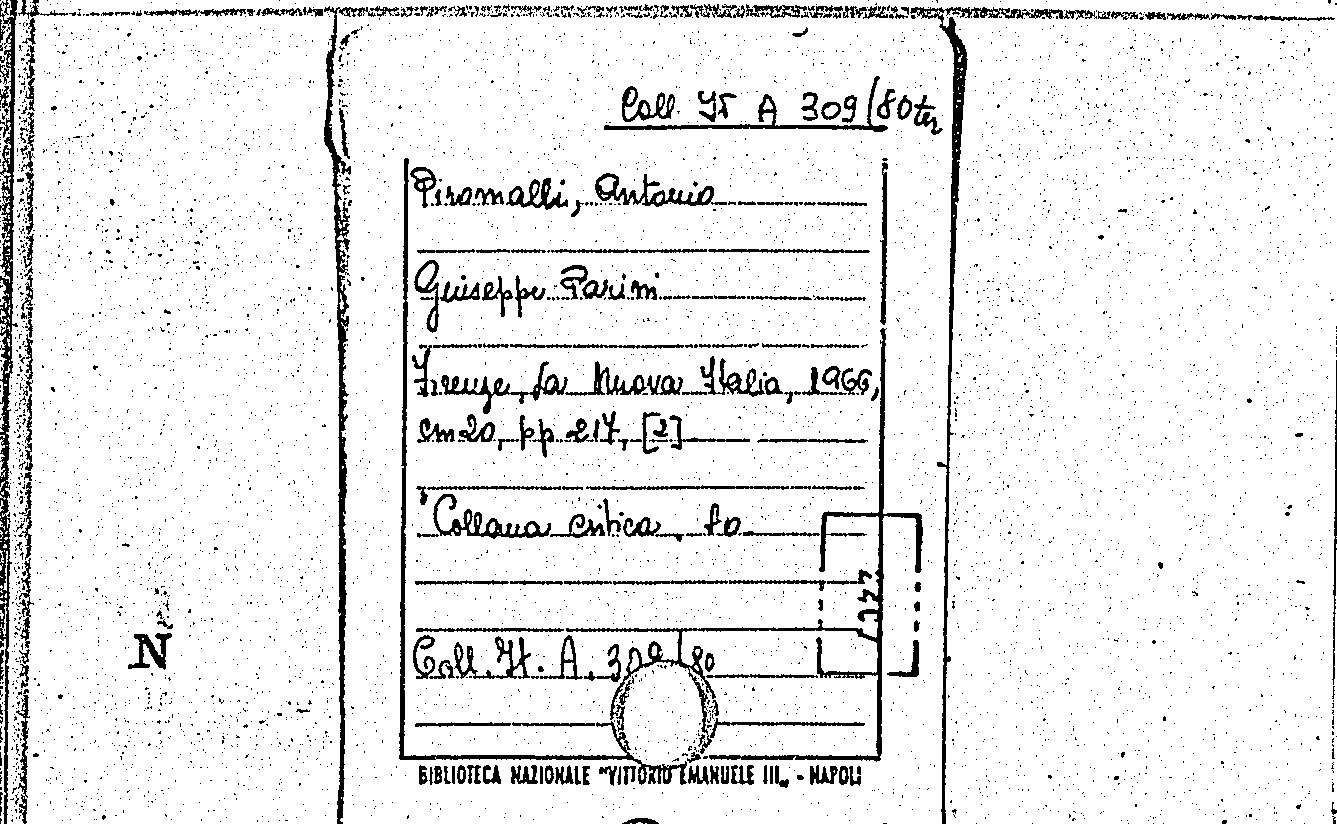 Coll. It A 309/80 ter
Piromalli, Antonio
Giuseppe Parini
Firenze, La Nuova Italia, 1966,
cm 20, pp. 217, [2]
"Collana critica, 80
N
Coll. It. A. 309/80
BIBLIOTECA NAZIONALE "VITTORIO EMANUELE III„ - NAPOLI